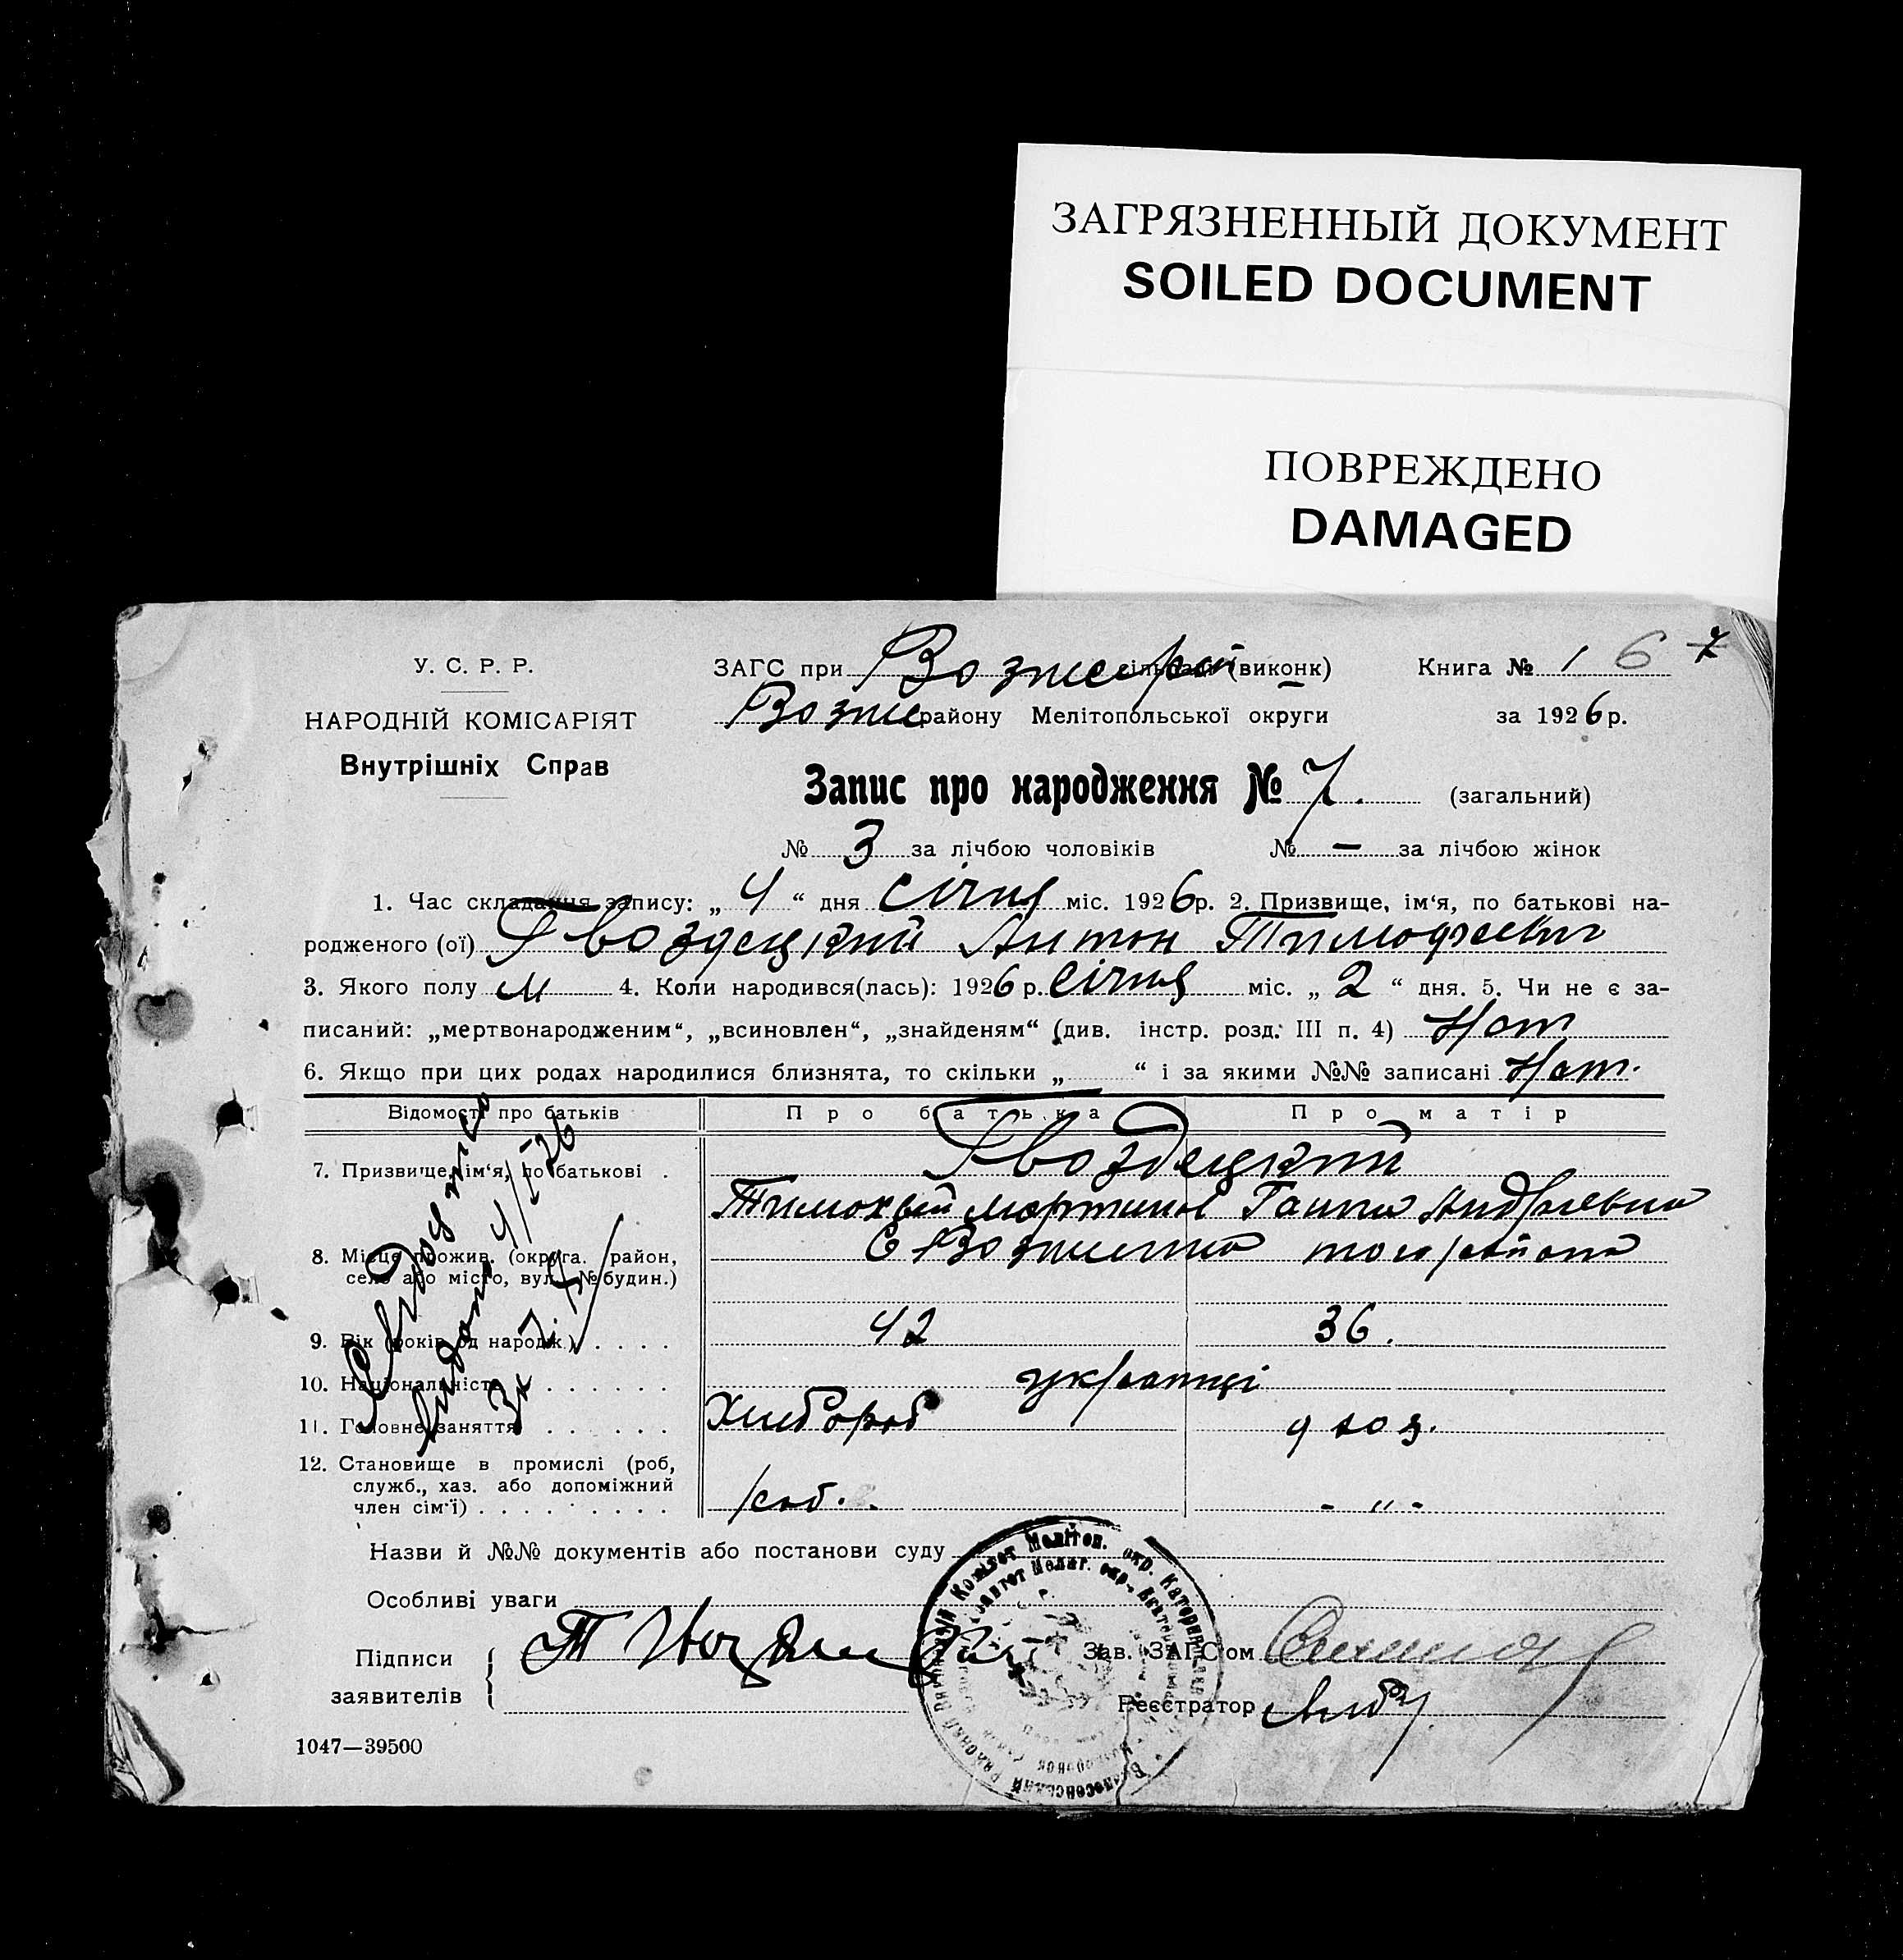 ЗАГРЯЗНЕННЫЙ ДОКУМЕНТ
SOILED DOCUMENT
ПОВРЕЖДЕНО
DAMAGED
У. С. Р. Р.
НАРОДНІЙ КОМІСАРІЯТ
Внутрішніх Справ
ЗАГС при сільраді (виконк)
Книга № 1 6 7
Вознес району Мелітопольської округи
за 1926 р.
Запис про народження № 7. (загальний)
№ 3 за лічбою чоловіків № — за лічбою жінок
1. Час складання запису: „ 4 “ дня січня міс. 1926 р. 2. Призвище, ім‘я, по батькові на-
родженого (ої) Гвоздецкий Антон Тимофеевич
3. Якого полу м 4. Коли народився(лась): 1926 р. січня міс. „ 2 “ дня. 5. Чи не є за-
писаний: „мертвонародженим“, „всиновлен“, „знайденям“ (див. інстр. розд. III п. 4) Нет
6. Якщо при цих родах народилися близнята, то скільки „ — “ і за якими №№ записані Нет.
Відомості про батьків
Про батька
Про матір
7. Призвище, ім‘я, по батькові .
Гвоздецкий
Тимохвей Мартинов Ганна Андриевна
8. Місце прожив. (округа. район,
село або місто, вул. № будин.)
9. Вік (років од народж.) . . . .
42
36.
10. Національність . . . . . .
українці
11. Головне заняття . . . . . .
Хлібороб
12. Становище в промислі (роб,
служб., хаз. або допоміжний
член сім‘ї) . . . . . . . . .
- „ -
видано 4/I-26
Назви й №№ документів або постанови суду
Особливі уваги
Підписи
заявителів
Зав. ЗАГС‘ом
Реєстратор
1047—39500